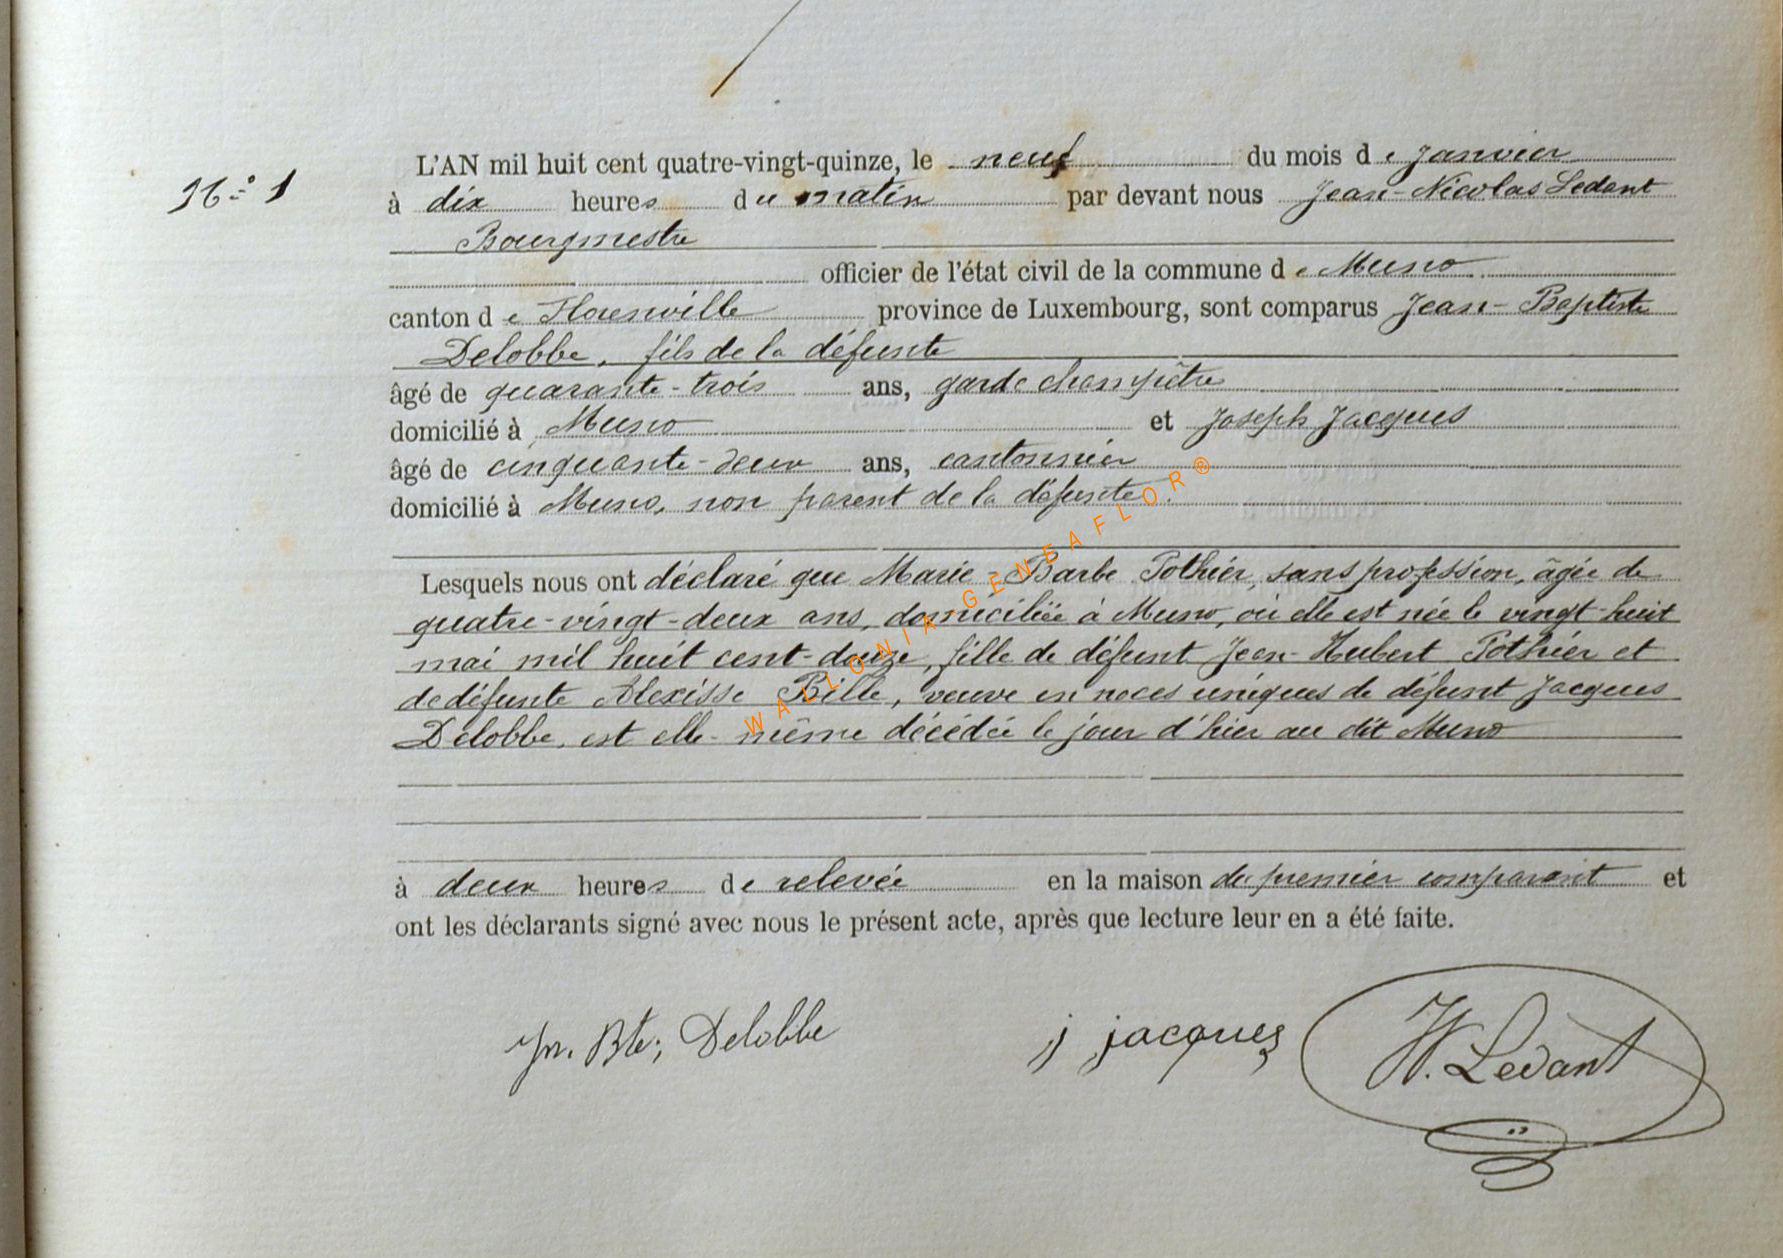 N° 1
L'AN mil huit cent quatre-vingt-quinze, le neuf du mois de Janvier
à dix heures du matin par devant nous Jean-Nicolas Ledant
Bourgmestre
officier de l'état civil de la commune de Muno
canton de Florenville province de Luxembourg, sont comparus Jean-Baptiste
Delobbe, fils de la défunte
âgé de quarante-trois ans, garde champêtre
domicilié à Muno et Joseph Jacques
âgé de cinquante-deux ans, cantonnier
domicilié à Muno, non parent de la défunte.
Lesquels nous ont déclaré que Marie-Barbe Pothier, sans profession, âgée de
quatre-vingt-deux ans, domiciliée à Muno, où elle est née le vingt-huit
mai mil huit cent-douze, fille de défunt Jean-Hubert Pothier et
de défunte Alexisse Bille, veuve en noces uniques de défunt Jacques
Delobbe, est elle-même décédée le jour d'hier au dit Muno
à deux heures de relevée en la maison du premier comparant et
ont les déclarants signé avec nous le présent acte, après que lecture leur en a été faite.
Jn. Bte; Delobbe
j jacques
N. Ledant
WALLONIA GENEAFLOR®